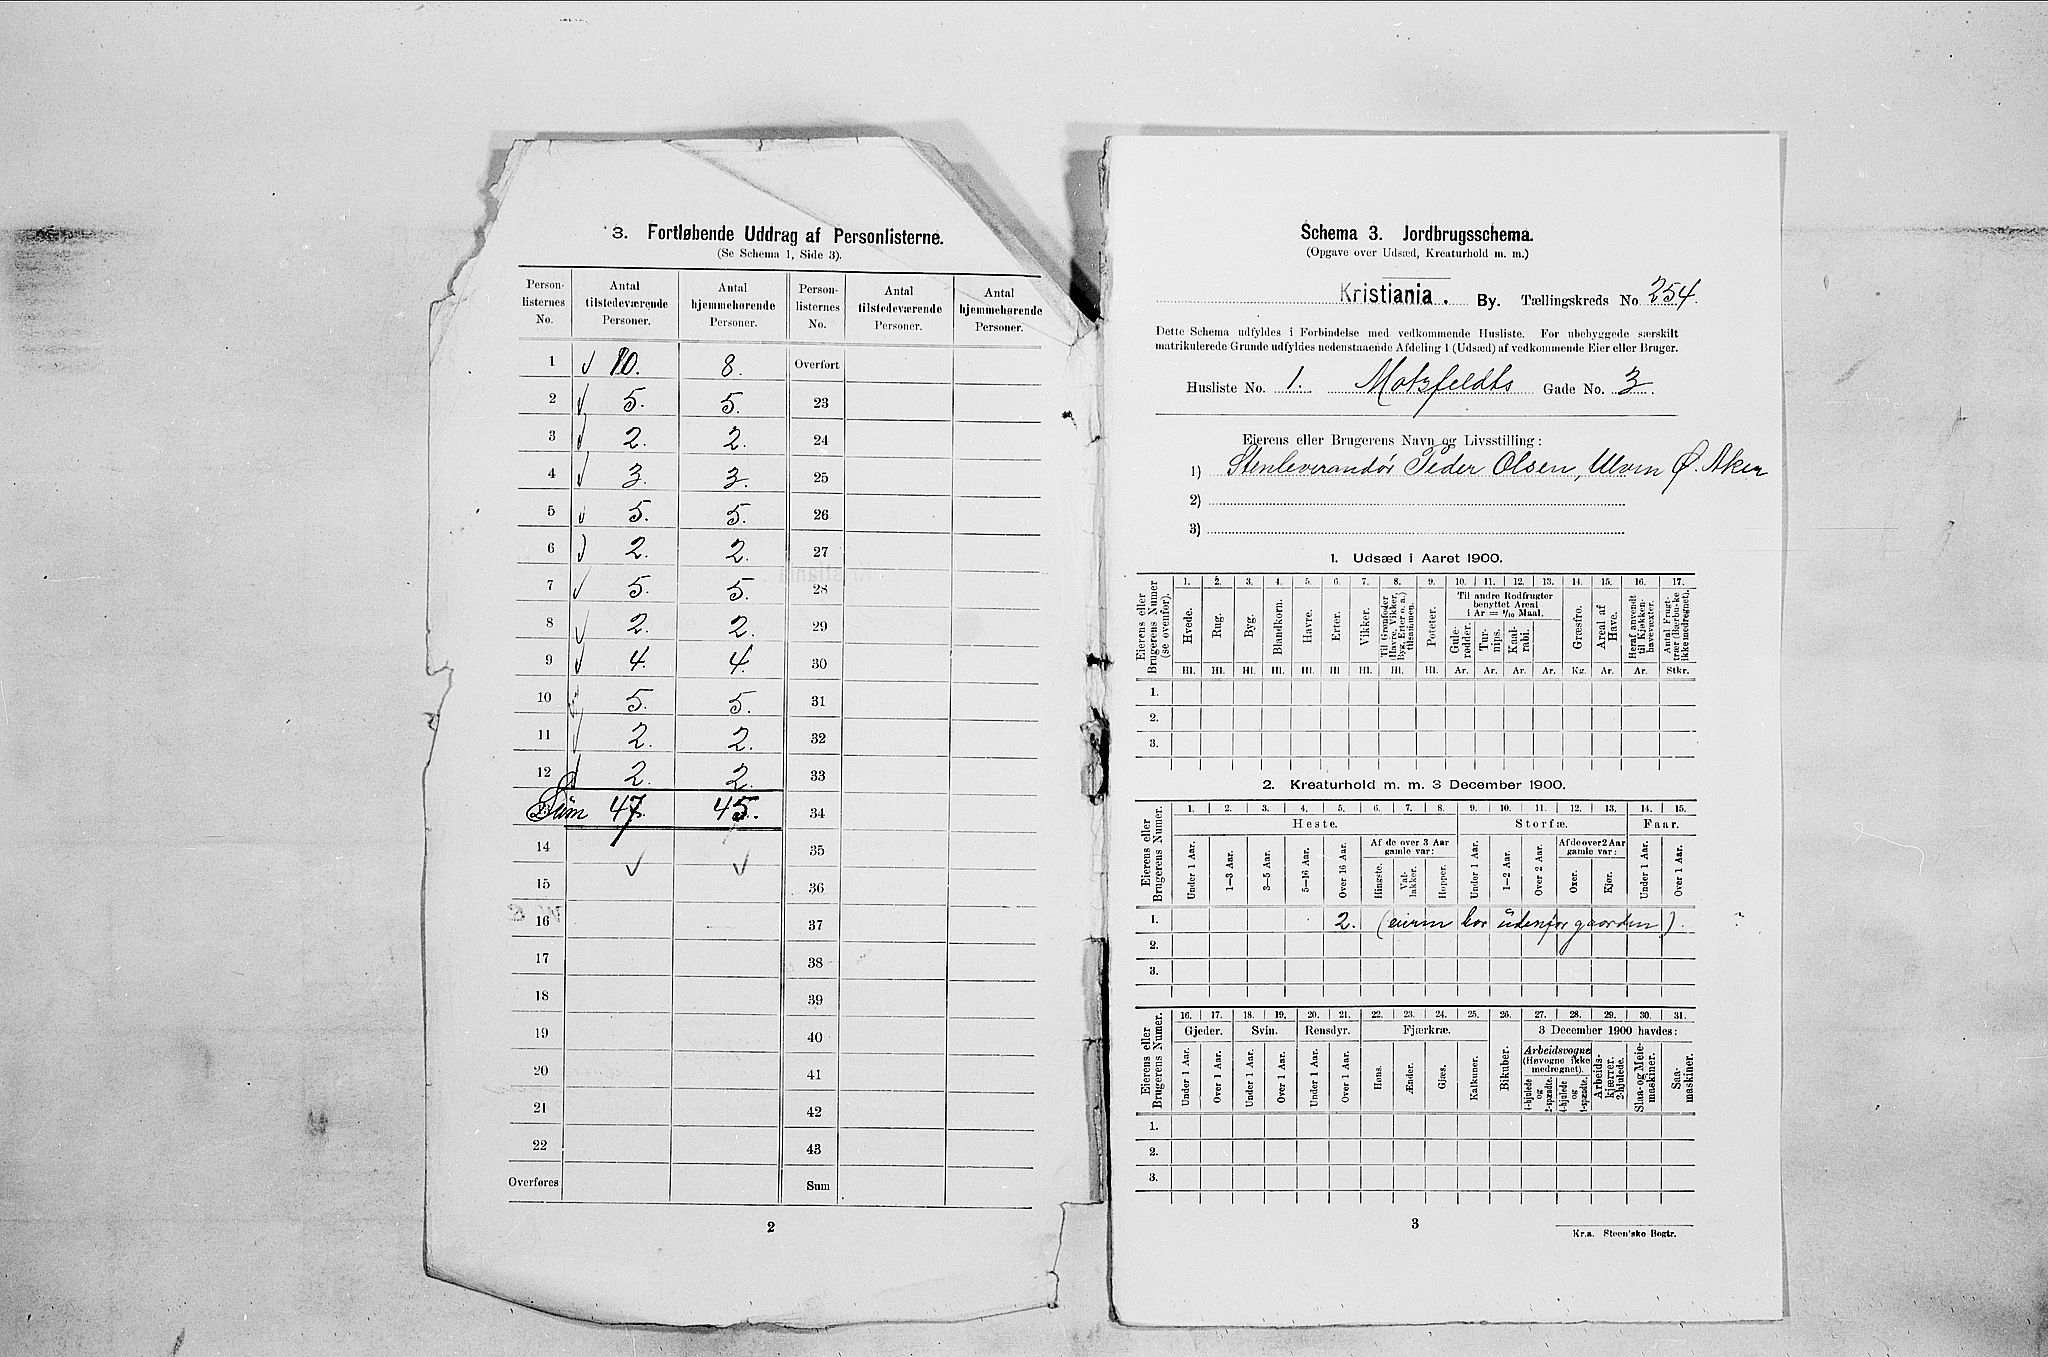 3. Fortløbende Uddrag af Personlisterne.
(Se Schema 1, Side 3).
Person-listernes No. | Antal tilstedeværende Personer. | Antal hjemmehørende Personer. | Person-listernes No. | Antal tilstedeværende Personer. | Antal hjemmehørende Personer.
1 | ✓ 10. | 8. | Overført
2 | ✓ 5. | 5. | 23
3 | ✓ 2. | 2. | 24
4 | ✓ 3. | 3. | 25
5 | ✓ 5. | 5. | 26
6 | ✓ 2. | 2. | 27
7 | ✓ 5. | 5. | 28
8 | ✓ 2. | 2. | 29
9 | ✓ 4. | 4. | 30
10 | 5. | 5. | 31
11 | ✓ 2. | 2. | 32
12 | ✓ 2. | 2. | 33
Sum | 47. | 45. | 34
14 | ✓ | ✓ | 35
15 | 36
16 | 37
17 | 38
18 | 39
19 | 40
20 | 41
21 | 42
22 | 43
Overføres | Sum
2
Schema 3. Jordbrugsschema.
(Opgave over Udsæd, Kreaturhold m. m.)
Kristiania. By. Tællingskreds No. 254.
Dette Schema udfyldes i Forbindelse med vedkommende Husliste. For ubebyggede særskilt
matrikulerede Grunde udfyldes nedenstaaende Afdeling 1 (Udsæd) af vedkommende Eier eller Bruger.
Husliste No. 1. Motzfeldts Gade No. 3.
Eierens eller Brugerens Navn og Livsstilling:
1) Stenleverandör Peder Olsen, Ulven Ø. Aker
2)
3)
1. Udsæd i Aaret 1900.
Eierens eller Brugerens Numer (se ovenfor).
1. 2. 3. 4. 5. 6. 7. 8. 9. 10. 11. 12. 13. 14. 15. 16. 17.
Hvede. Rug. Byg. Blandkorn. Havre. Erter. Vikker. Til Grønfoder (Havre, Vikker, Byg, Erter o. a.) tilsaaning. Poteter.
Til andre Rodfrugter benyttet Areal i Ar = 1/10 Maal.
Gule-rødder. Tur-nips. Kaal-rabi. Græsfrø. Areal af Have. Heraf anvendt til Kjøkken-havevæxter. Antal Frugt-trær (Bærbuske ikke medregnet).
Hl. Hl. Hl. Hl. Hl. Hl. Hl. Hl. Hl. Ar. Ar. Ar. Ar. Kg. Ar. Ar. Stkr.
1.
2.
3.
2. Kreaturhold m. m. 3 December 1900.
Eierens eller Brugerens Numer.
1. 2. 3. 4. 5. 6. 7. 8. 9. 10. 11. 12. 13. 14. 15.
Heste. Storfæ. Faar.
Af de over 3 Aar gamle var: Af de over 2 Aar gamle var:
Under 1 Aar. 1–3 Aar. 3–5 Aar. 5–16 Aar. Over 16 Aar. Hingste. Val-lakker. Hopper. Under 1 Aar. 1–2 Aar. Over 2 Aar. Oxer. Kjør. Under 1 Aar. Over 1 Aar.
1. 2. (eieren bor udenfor gaarden).
2.
3.
Eierens eller Brugerens Numer.
16. 17. 18. 19. 20. 21. 22. 23. 24. 25. 26. 27. 28. 29. 30. 31.
Gjeder. Svin. Rensdyr. Fjærkræ. Bikuber. 3 December 1900 havdes:
Under 1 Aar. Over 1 Aar. Under 1 Aar. Over 1 Aar. Under 1 Aar. Over 1 Aar. Høns. Ænder. Gjæs. Kalkuner.
Arbeidsvogne (Høvogne ikke medregnet).
4-hjulede og 2-spændte. 4-hjulede og 1-spændte. Arbeids-kjærrer, 2-hjulede. Slaa- og Meie-maskiner. Saa-maskiner.
1.
2.
3.
3
Kr.a. Steen'ske Bogtr.